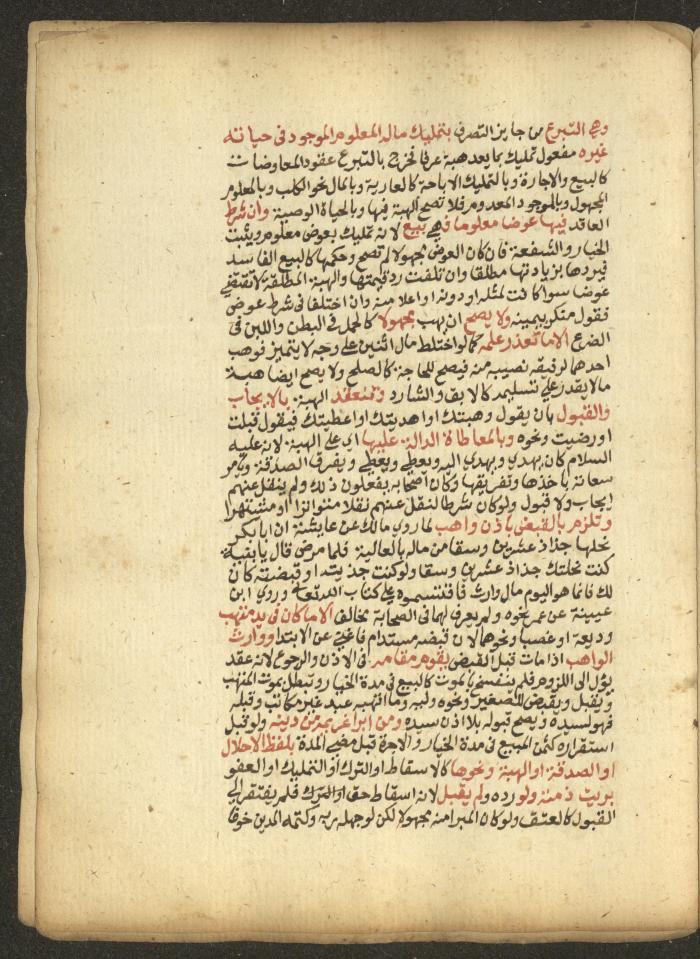 وهي التبرع من جايز التصرف بتمليك ماله المعلوم الموجود في حياته
غيره مفعول تمليك بما يعد هبة عرفا فخرج بالتبرع عقود المعاوضات
كالبيع والاجارة وبالتمليك الاباحة كالعارية وبالمال نحو الكلب وبالمعلوم
المجهول وبالموجود المعدوم فلا تصح الهبة فيها وبالحياة الوصية وان شرط
العاقد فيها عوضا معلوما فهي بيع لانه تمليك بعوض معلوم ويثبت
الخيار والشفعة فان كان العوض مجهولا لم تصح وحكمها كالبيع الفاسد
فيردها بزيادتها مطلقا وان تلفت رد قيمتها والهبة المطلقة لا تقتضي
عوضا سوا كانت لمثله او دونه او اعلا منه وان اختلفا في شرط عوض
فقول منكر بيمينه ولا يصح ان يهب مجهولا كالحمل في البطن واللبن في
الضرع الا ما تعذر علمه كما لو اختلط مال اثنين على وجه لا يتميز فوهب
احدهما لرفيقه نصيبه منه فيصح للحاجة كالصلح ولا يصح ايضا هبة
ما لا يقدر على تسليمه كالابق والشارد وتنعقد الهبة بالايجاب
والقبول بان يقول وهبتك او اهديتك او اعطيتك فيقول قبلت
او رضيت ونحوه وبالمعاطاة الدالة عليها اي على الهبة لانه عليه
السلام كان يهدي ويهدى اليه ويعطي ويعطى ويفرق الصدقة ويامر
سعاته باخذها وتفريقها وكان اصحابه يفعلون ذلك ولم ينقل عنهم
ايجاب ولا قبول ولو كان شرطا لنقل عنهم نقلا متواترا او مشتهرا
وتلزم بالقبض باذن واهب لما روى مالك عن عايشة ان ابا بكر
نحلها جذاذ عشرين وسقا من ماله بالعالية فلما مرض قال يا بنية
كنت نحلتك جذاذ عشرين وسقا ولو كنت جذيتيه او قبضته كان
لك فانما هو اليوم مال وارث فاقتسموه على كتاب الله تعالى وروى ابن
عيينة عن عمر نحوه ولم يعرف لهما في الصحابة مخالف الا ما كان في يد متهب
وديعة او غصب ونحوهما لان قبضه مستدام فاغنى عن الابتدا ووارث
الواهب اذا مات قبل القبض يقوم مقامه في الاذن والرجوع لانه عقد
يؤل الى اللزوم فلم ينفسخ بالموت كالبيع في مدة الخيار وتبطل بموت المتهب
ويقبل ويقبض للصغير ونحوه وليه وما اتهبه عبد غير مكاتب وقبله
فهو لسيده ويصح قبوله بلا اذن سيده ومن ابرا غريمه من دينه ولو قبل
استقراره كثمن المبيع في مدة الخيار والاجرة قبل مضي المدة بلفظ الاحلال
او الصدقة او الهبة ونحوها كالاسقاط او الترك او التمليك او العفو
بريت ذمته ولو رده ولم يقبل لانه اسقاط حق او الترك فلم يفتقر الى
القبول كالعتق ولو كان المبرا منه مجهولا لكن لو جهله ربه وكتمه المدين خوفا